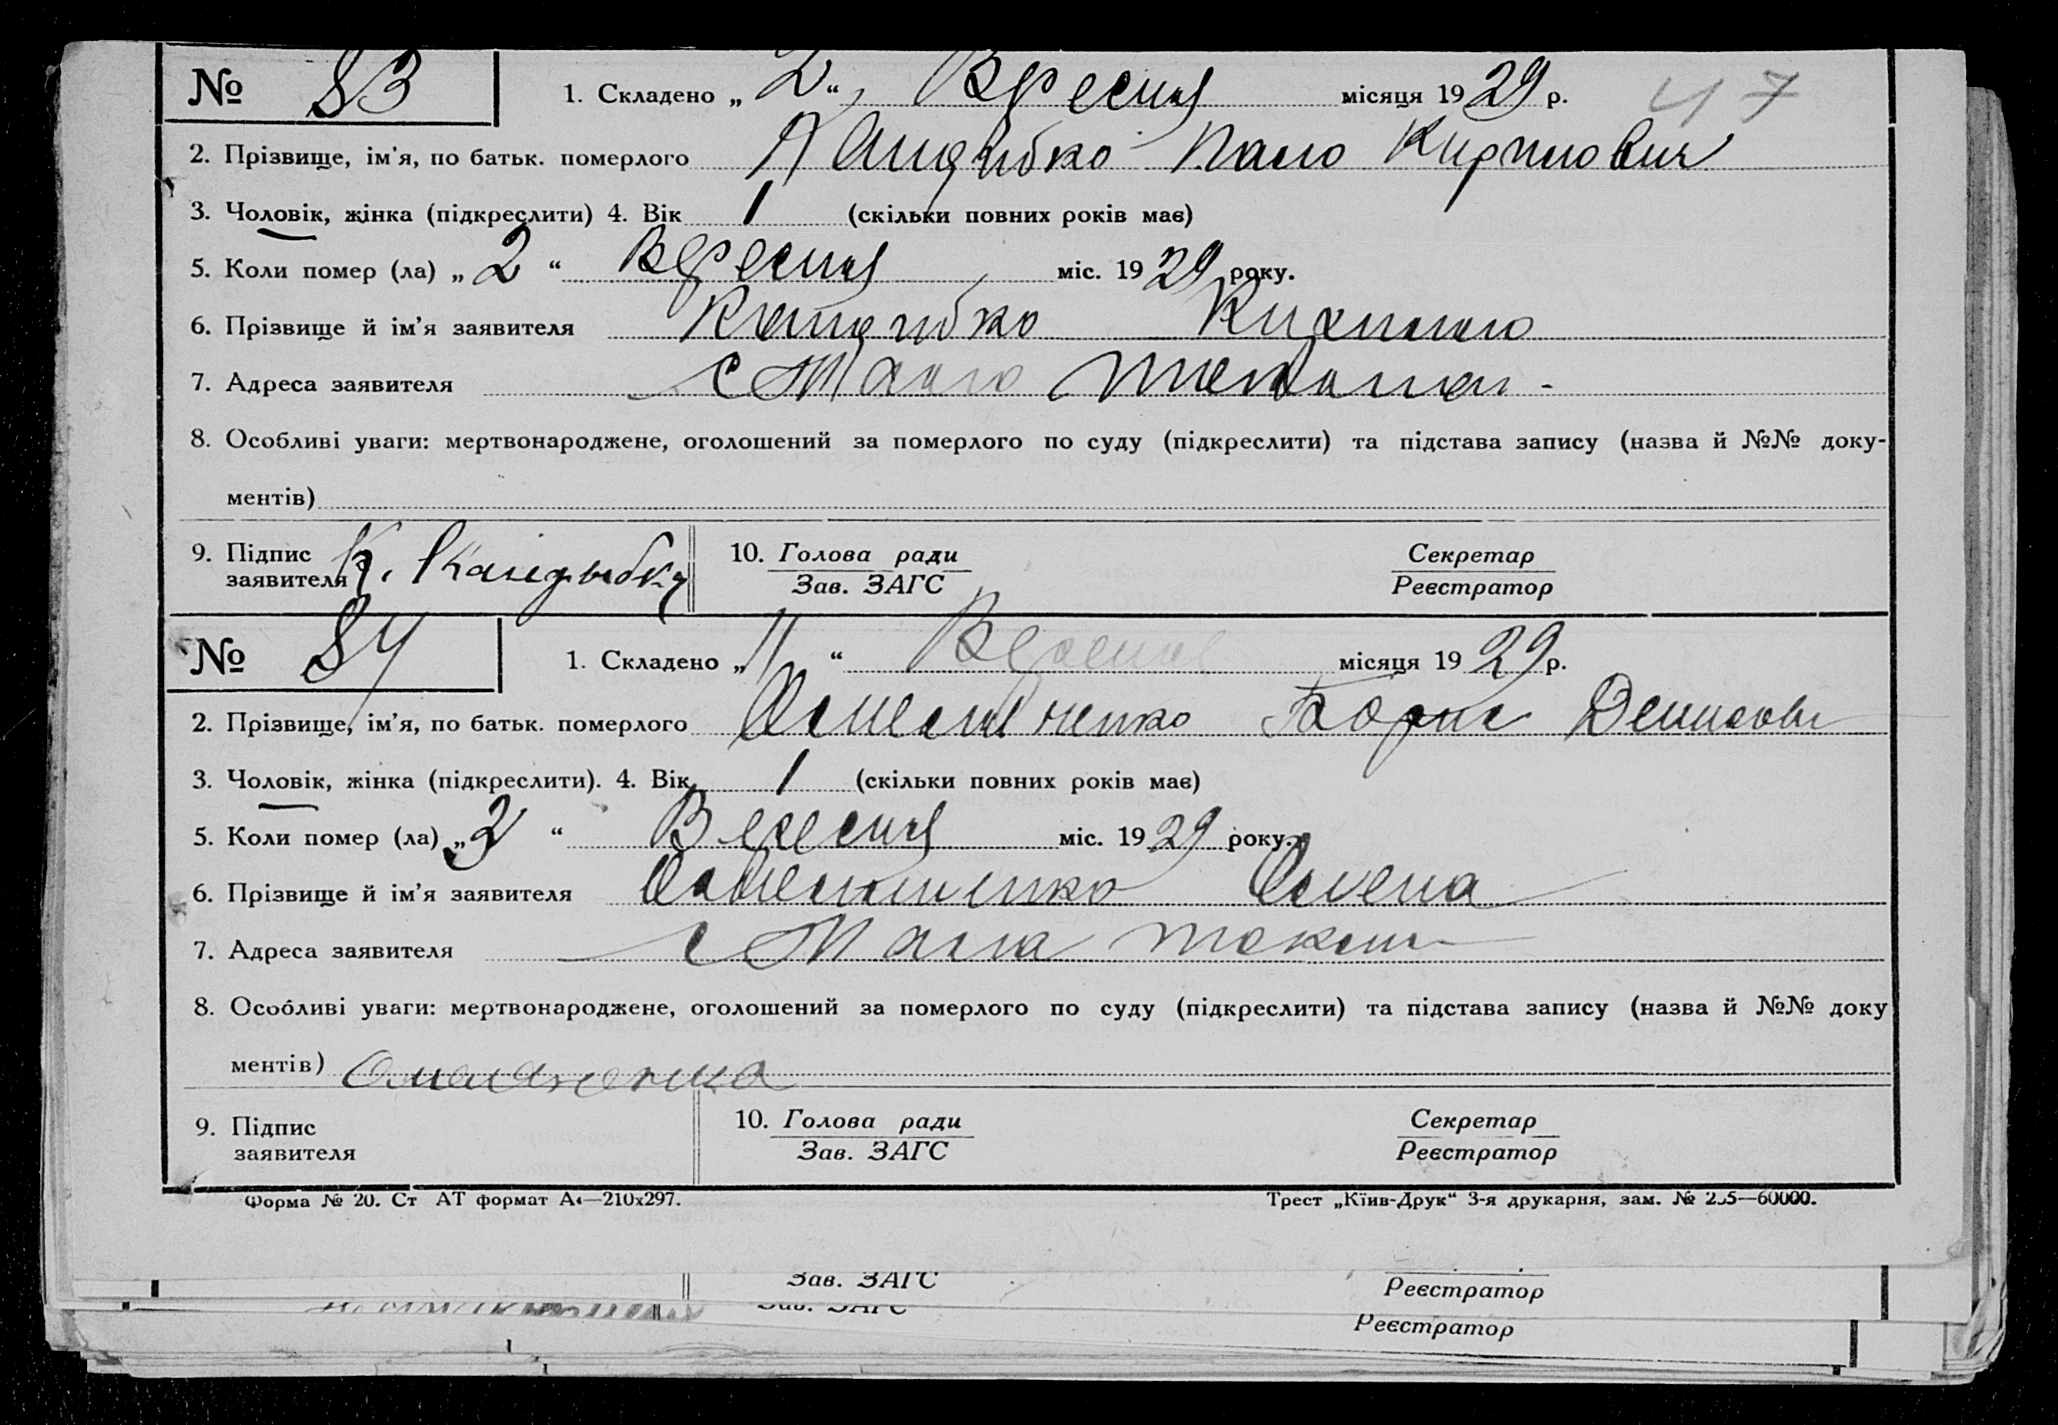 № 83 1. Складено „2“ Вересня місяця 1929 р. 47
2. Прізвище, ім'я, по батьк. померлого Кандибко Павло Кирилович
3. Чоловік, жінка (підкреслити) 4. Вік 1 (скільки повних років має)
5. Коли помер (ла) „2“ Вересня міс. 1929 року.
6. Прізвище й ім'я заявителя Кандибко Кирило
7. Адреса заявителя с
8. Особливі уваги: мертвонароджене, оголошений за померлого по суду (підкреслити) та підстава запису (назва й №№ доку-
ментів)
9. Підпис К. Кандыбка 10. Голова ради Секретар
заявителя Зав. ЗАГС Реєстратор
№ 84 1. Складено „11“ Вересня місяця 1929 р.
2. Прізвище, ім'я, по батьк. померлого Борис Денисови
3. Чоловік, жінка (підкреслити). 4. Вік 1 (скільки повних років має)
5. Коли помер (ла) „2“ Вересня міс. 1929 року.
6. Прізвище й ім'я заявителя Олена
7. Адреса заявителя с
8. Особливі уваги: мертвонароджене, оголошений за померлого по суду (підкреслити) та підстава запису (назва й №№ доку
ментів)
9. Підпис 10. Голова ради Секретар
заявителя Зав. ЗАГС Реєстратор
Форма № 20. Ст АТ формат А4—210х297. Трест „Київ-Друк“ 3-я друкарня, зам. № 235—60000.
Зав. ЗАГС Реєстратор
Зав. ЗАГС
Реєстратор